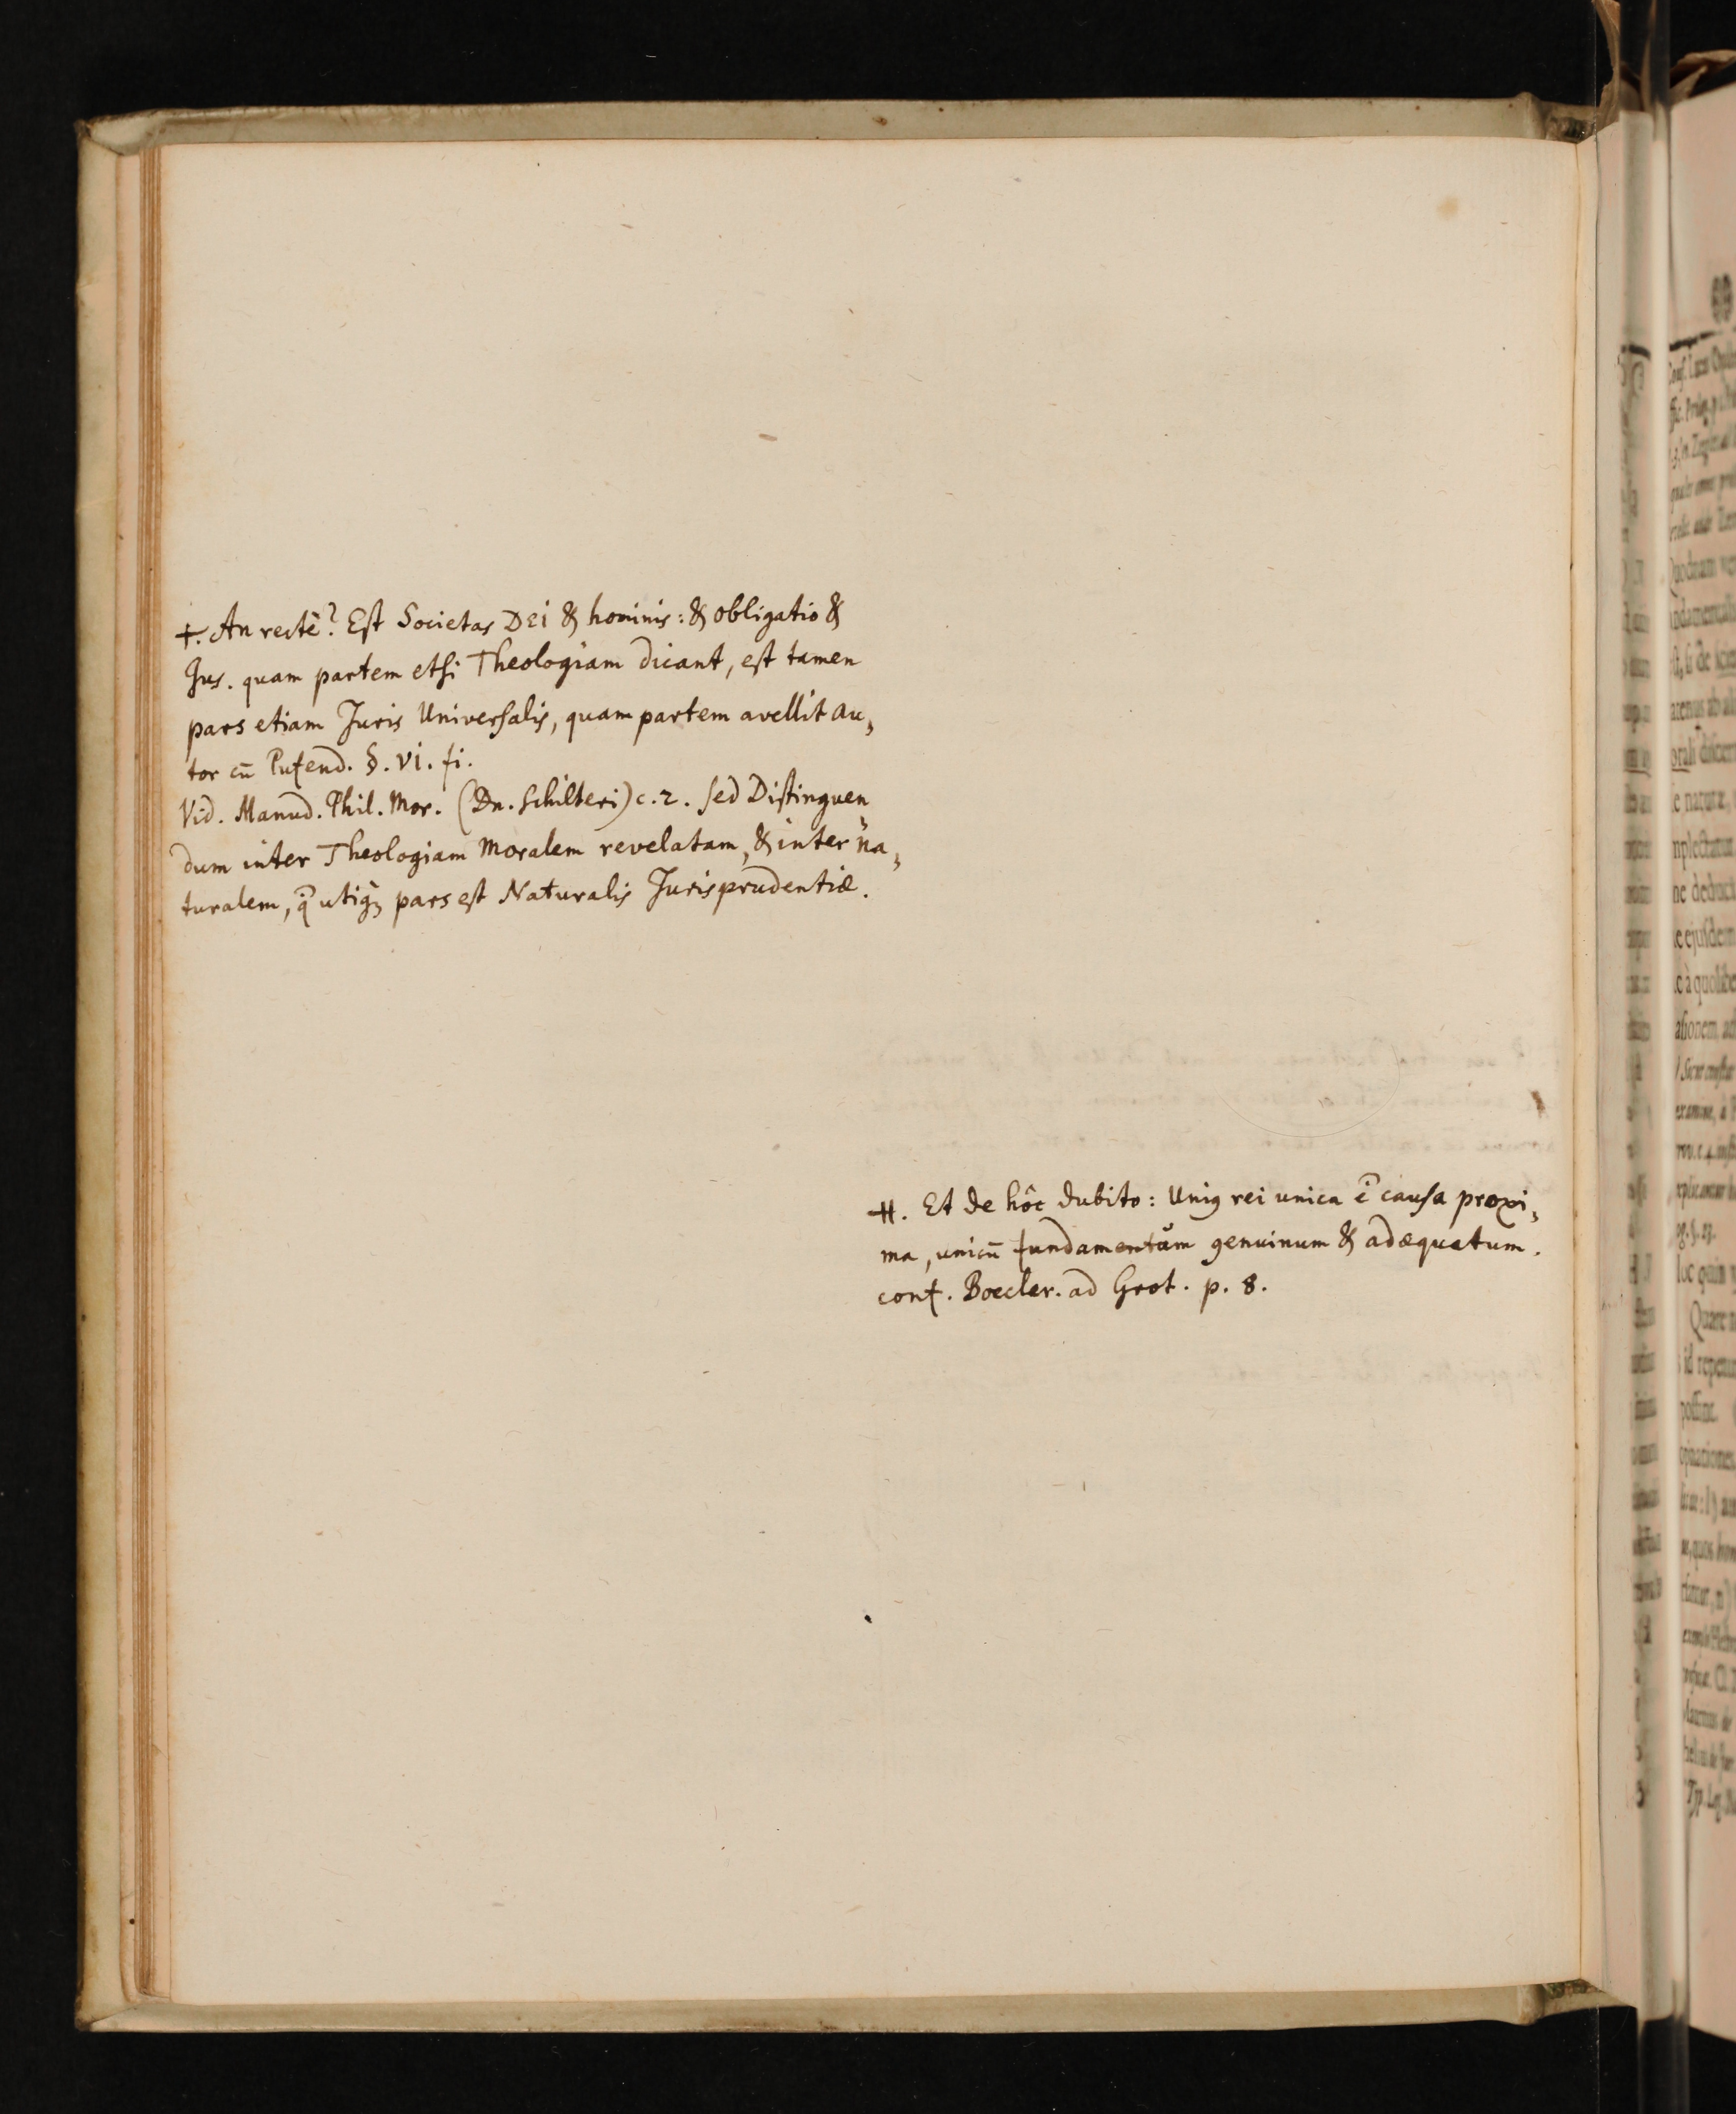 †. An rectè? Est Societas DEi & hominis: & obligatio &
Jus. quam partem etsi Theologiam dicant, est tamen
pars etiam Juris Universalis, quam partem avellit au„
tor cū Pufend. §. VI. fi.
Vid. Manud. Phil. Mor. (Dn. Schilteri) c. 2. sed Distinguen„
dum inter Theologiam Moralem revelatam, & inter na„
turalem, q̃ utiq; pars est Naturalis Jurisprudentiæ.
⧺. Et de hôc dubito: Uniꝰ rei unica ẽ causa proxi„
ma, unicū fundamentŭm genuinum & adæquatum.
conf. Boecler. ad Grot. p. 8.